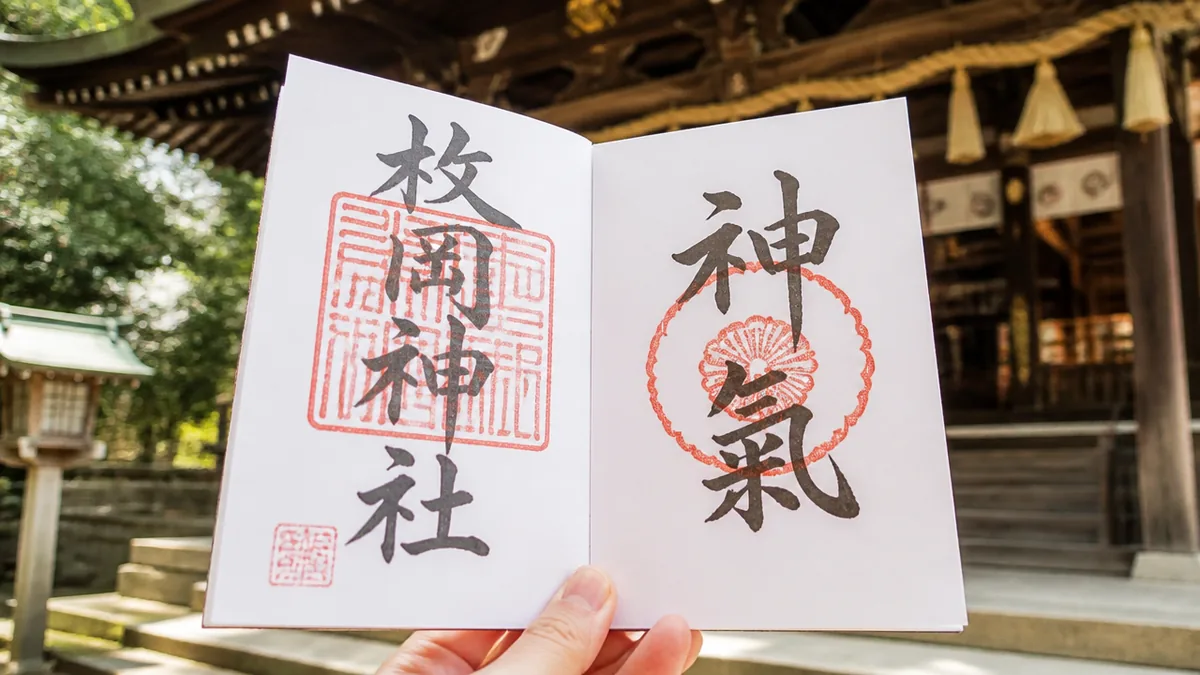 枚岡神社
神氣